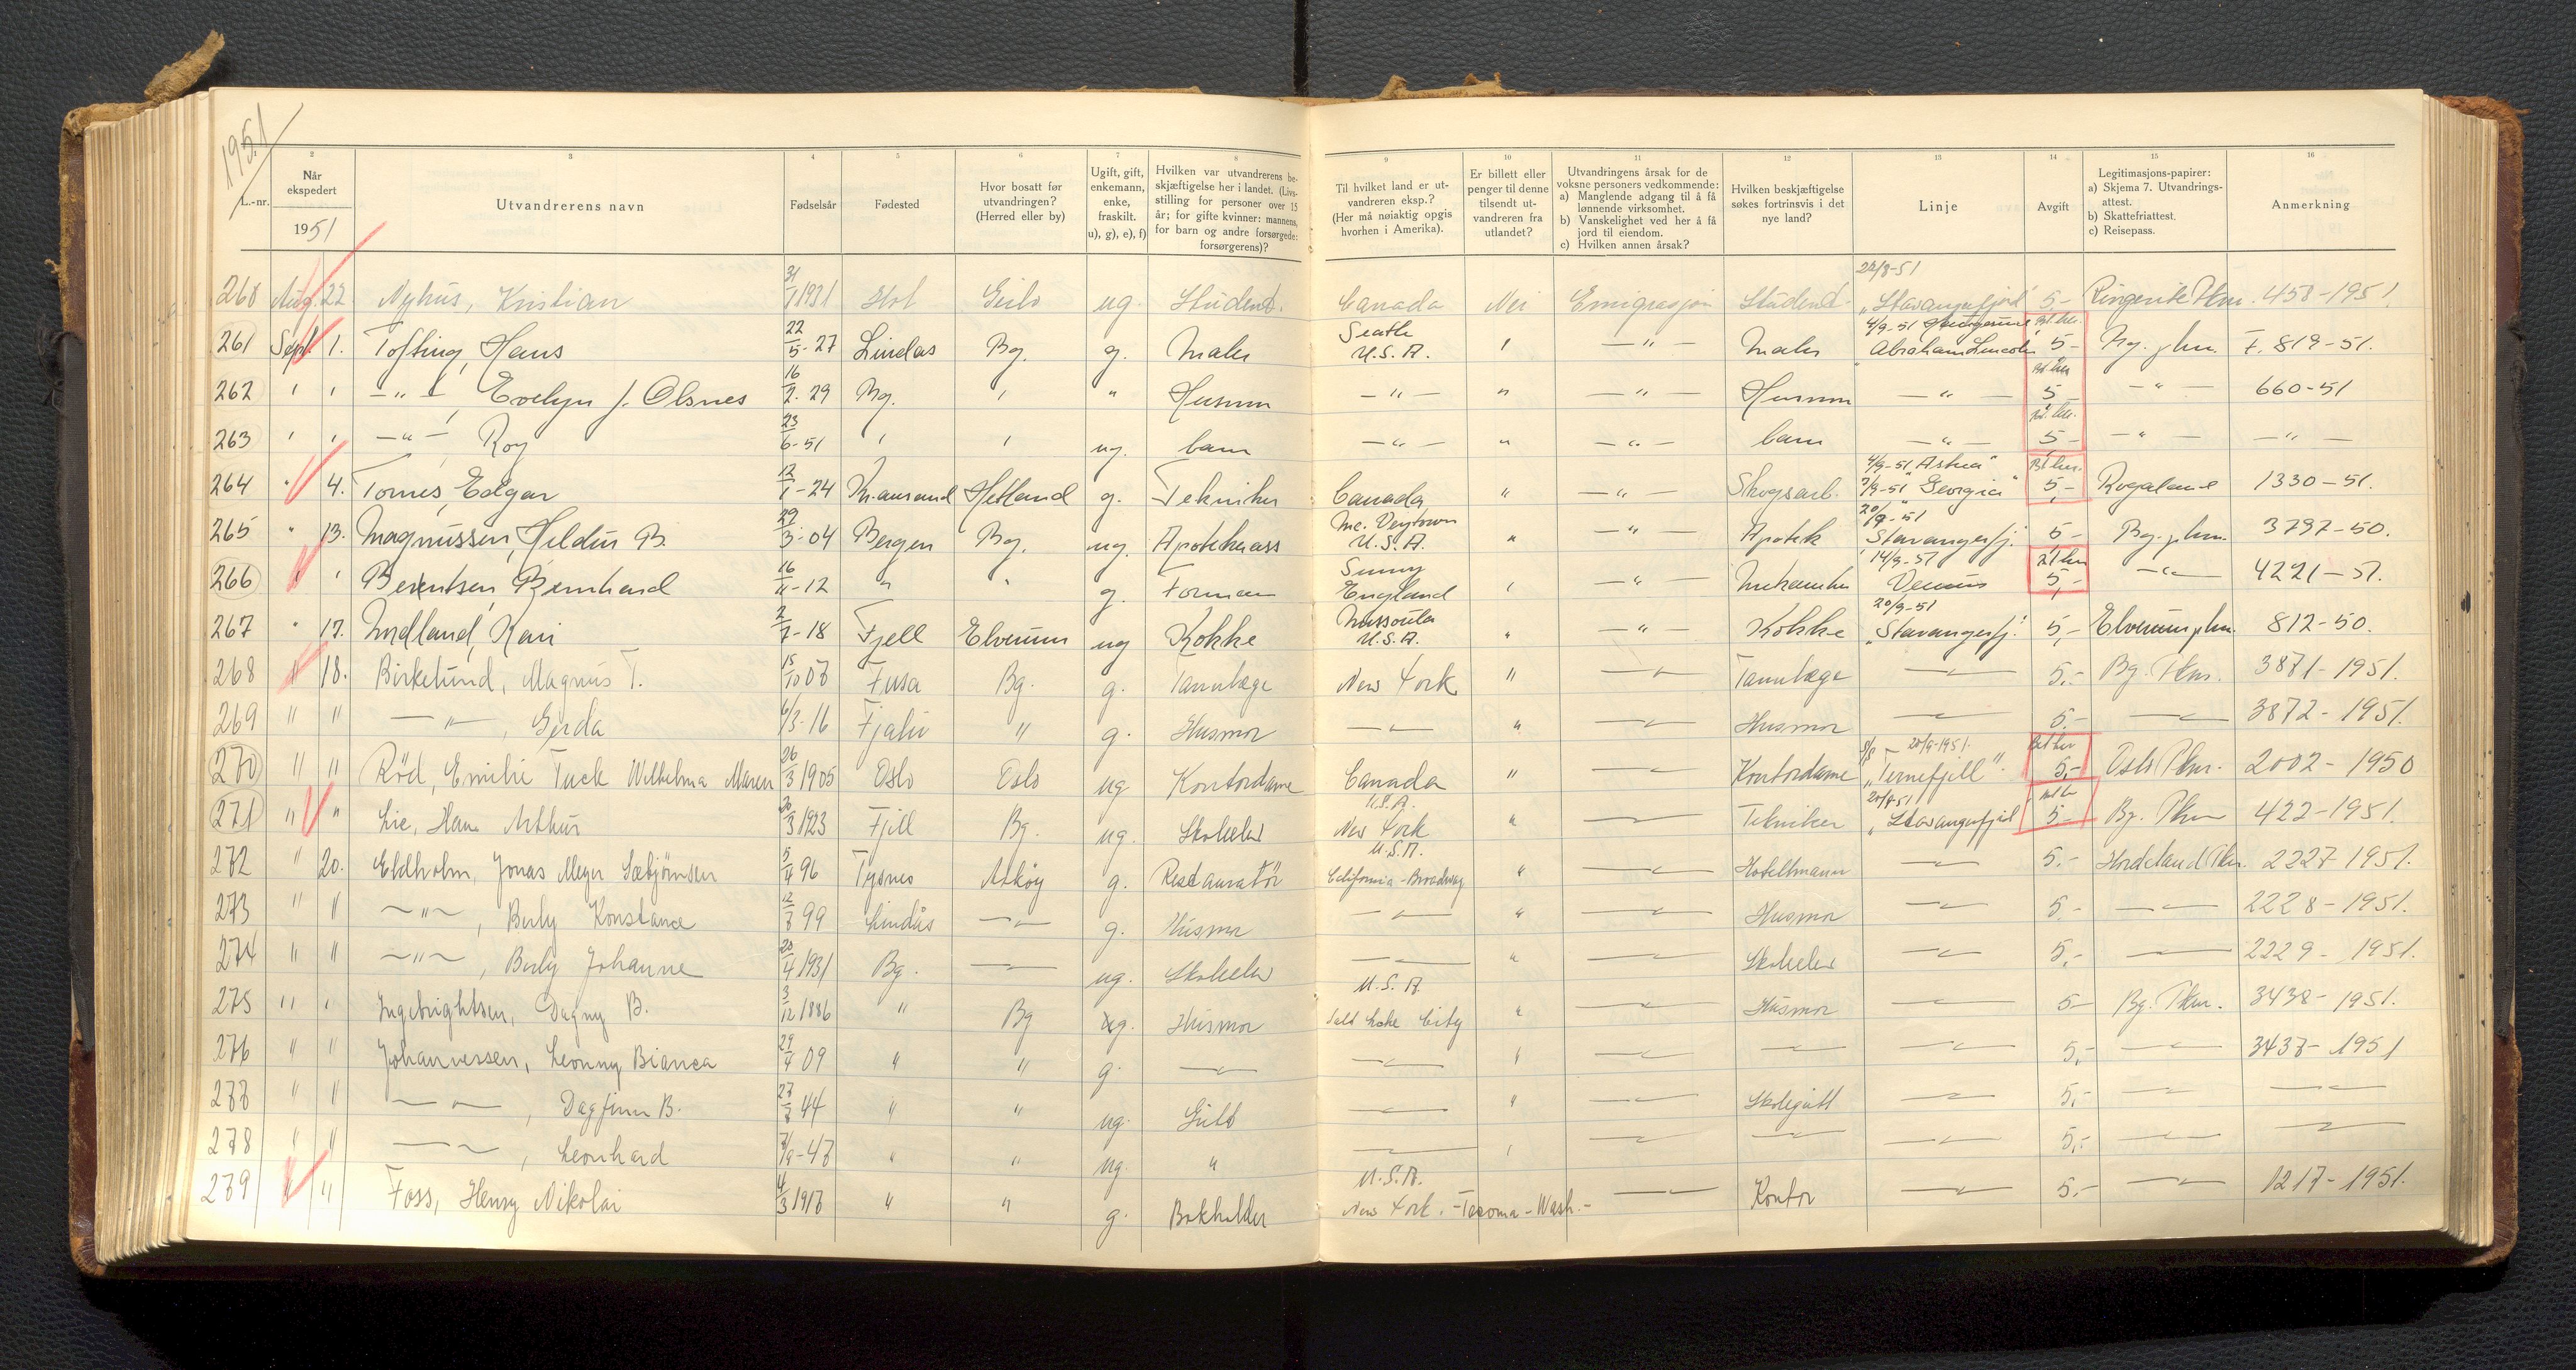 1951
1 2 3 4 5 6 7 8 9 10 11 12 13 14 15 16
L.-nr. Når ekspedert 1951 Utvandrerens navn Fødselsår Fødested Hvor bosatt før utvandringen? (Herred eller by) Ugift, gift, enkemann, enke, fraskilt. u), g), e), f) Hvilken var utvandrerens beskjæftigelse her i landet. (Livsstilling for personer over 15 år; for gifte kvinner: mannens, for barn og andre forsørgede: forsørgerens)? Til hvilket land er utvandreren eksp.? (Her må nøiaktig opgis hvorhen i Amerika). Er billett eller penger til denne tilsendt utvandreren fra utlandet? Utvandringens årsak for de voksne personers vedkommende: a) Manglende adgang til å få lønnende virksomhet. b) Vanskelighet ved her å få jord til eiendom. c) Hvilken annen årsak? Hvilken beskjæftigelse søkes fortrinsvis i det nye land? Linje Avgift Legitimasjons-papirer: a) Skjema 7. Utvandringsattest. b) Skattefriattest. c) Reisepass. Anmerkning
260 Aug. 22 Nyhus, Kristian 31/1 1931 Hol Geilo ug. Student. Canada Nei Emigrasjon Student 22/8-51 "Stavangerfjord" 5- Ringerike Pkm. 458-1951
261 Sept. 1. Tofting, Hans 22/5-27 Lindås Bg. g. Maler Seattle U.S.A. " — " — Maler 4/9-51 Abraham Lincoln 5- Bg. pkm. F. 819-51.
262 " " — " — , Evelyn f. Olsnes 16/2-29 Bg. " " Husmor — " — " — " — Husmor — " — 5 — " — 660-51
263 " " — " — , Roy 23/6-51 " " ug. barn — " — " — " — barn — " — 5- — " — — " —
264 " 4. Tornes, Edgar 12/1-24 Kr.ansund Hetland g. Tekniker Canada " — " — Skogsarb. 4/9-51 "Astrea" 7/9-51 "Georgia" 5,- Rogaland 1330-51.
265 " 13. Magnussen, Hildur B. 29/3-04 Bergen Bg. ug. Apotekerass U.S.A. " — " — Apotek 20/9-51 Stavangerfj. 5- Bg. pkm. 3797-50.
266 " " Berentsen, Bernhard 16/11-12 " " g. Forman England " — " — Mekaniker 14/9-51 Venus 5,- — " — 4221-51.
267 " 17. Indland, Kari 2/7-18 Fjell Elverum ug Kokke Missoula U.S.A. " — " — Kokke 20/9-51 "Stavangerfj." 5,- Elverum pkm. 812-50.
268 " 18. Birkelund, Magnus T. 15/10 07 Fusa Bg. g. Tannlæge New York " — " — Tannlæge — " — 5.- Bg. Pkm. 3871-1951.
269 " " — " — , Gerda 6/3-16 Fjaler " g. Husmor — " — " — " — Husmor — " — 5.- — " — 3872-1951.
270 " " Rød, Emilie Tuck Wilhelma Maren 26/3 1905 Oslo Oslo ug Kontordame Canada " — " — Kontordame 20/9-1951. "Ternefjell". 5,- Oslo Pkm. 2002-1950
271 " " Lie, Hans Arthur 20/3 1923 Fjell Bg. ug. Skoleelev U.S.A. New York " — " — Tekniker "Stavangerfjord 5- Bg. Pkm 422-1951.
272 " 20. Eldholm, Jonas Meyer Sæbjørnsen 5/4 96 Tysnes Askøy g. Restauratør U.S.A. California-Broadway " — " — Hotellmann — " — 5.- Hordaland Pkm. 2227 1951.
273 " " — " — , Berly Konstance 12/8 99 Lindås — " — g. Husmor — " — " — " — Husmor — " — 5.- — " — 2228-1951.
274 " " — " — , Berly Johanne 20/4 1931 Bg. — " — ug. Skoleelev — " — " — " — Skoleelev — " — 5,- — " — 2229-1951.
275 " " Ingebrightsen, Dagny B. 3/12 1886 " Bg g. Husmor U.S.A. Salt Lake City " — " — Husmor — " — 5- Bg. Pkm. 3438-1951.
276 " " Johannessen, Leonny Bianca 29/4 09 " " g. — " — — " — " — " — — " — — " — 5,- — " — 3437-1951
277 " " — " — , Dagfinn B. 27/8 44 " " ug. Gutt — " — " — " — Skolegutt — " — 5,- — " — — " —
278 " " — " — , Leonhard 7/9-47 " " ug. " — " — " — " — — " — — " — 5,- — " — — " —
279 " " Foss, Henry Nikolai 4/3 1917 " " g. Bokholder U.S.A. New York. -Tacoma-Wash.- — " — Kontor — " — 5.- — " — 1217-1951.